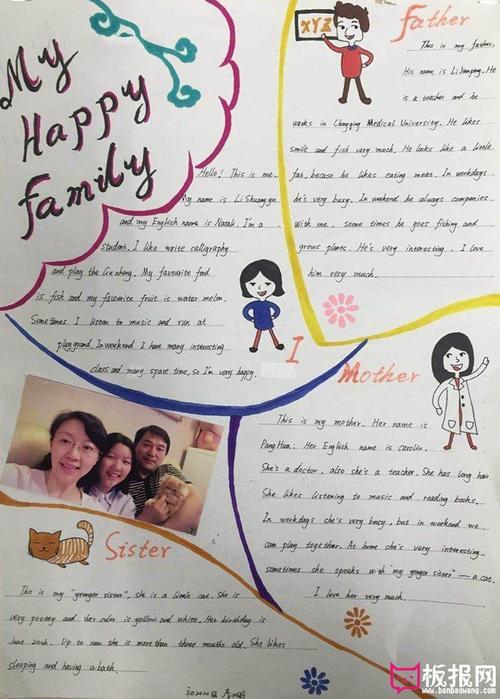 My
Happy
Family
Hello! This is me.
My name is Li Shuangyu
and my English name is Natali. I'm a
student. I like write calligraphy
and play the Guzheng. My favourite food
is fish and my favourite fruit is water melon.
Sometimes I listen to music and run at
playgrand. In weekend I have many interesting
class and many spare time, so I'm very happy.
I
XYZ
Father
This is my father.
His name is Li Jianping. He
is a teacher and he
works in Chongqing Medical University. He likes
smile and fish very much. He looks like a little
fat, because he likes eating meat. In workdays
he's very busy. In weekend he always companies
with me. some times he goes fishing and
grows plants. He's very interesting. I love
him very much.
Mother
This is my mother. Her name is
Pang Hua. Her English name is carolin.
She's a doctor, also she's a teacher. She has long hair
She likes listening to music and reading books.
In workdays she's very busy, but in weekend we
can play together. At home she's very interesting.
sometimes she speaks with "my yonger sister" — a cat.
I love her very much.
Sister
This is my "younger sister", she is a little cat. She is
very pretty and her color is yellow and white. Her birthday is
June 20th. Up to now she is more than three months old. She likes
sleeping and having a bath.
初2020级
板报网
www.banbaowang.com